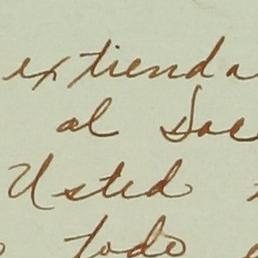 extienda
al Soc
Usted
todo